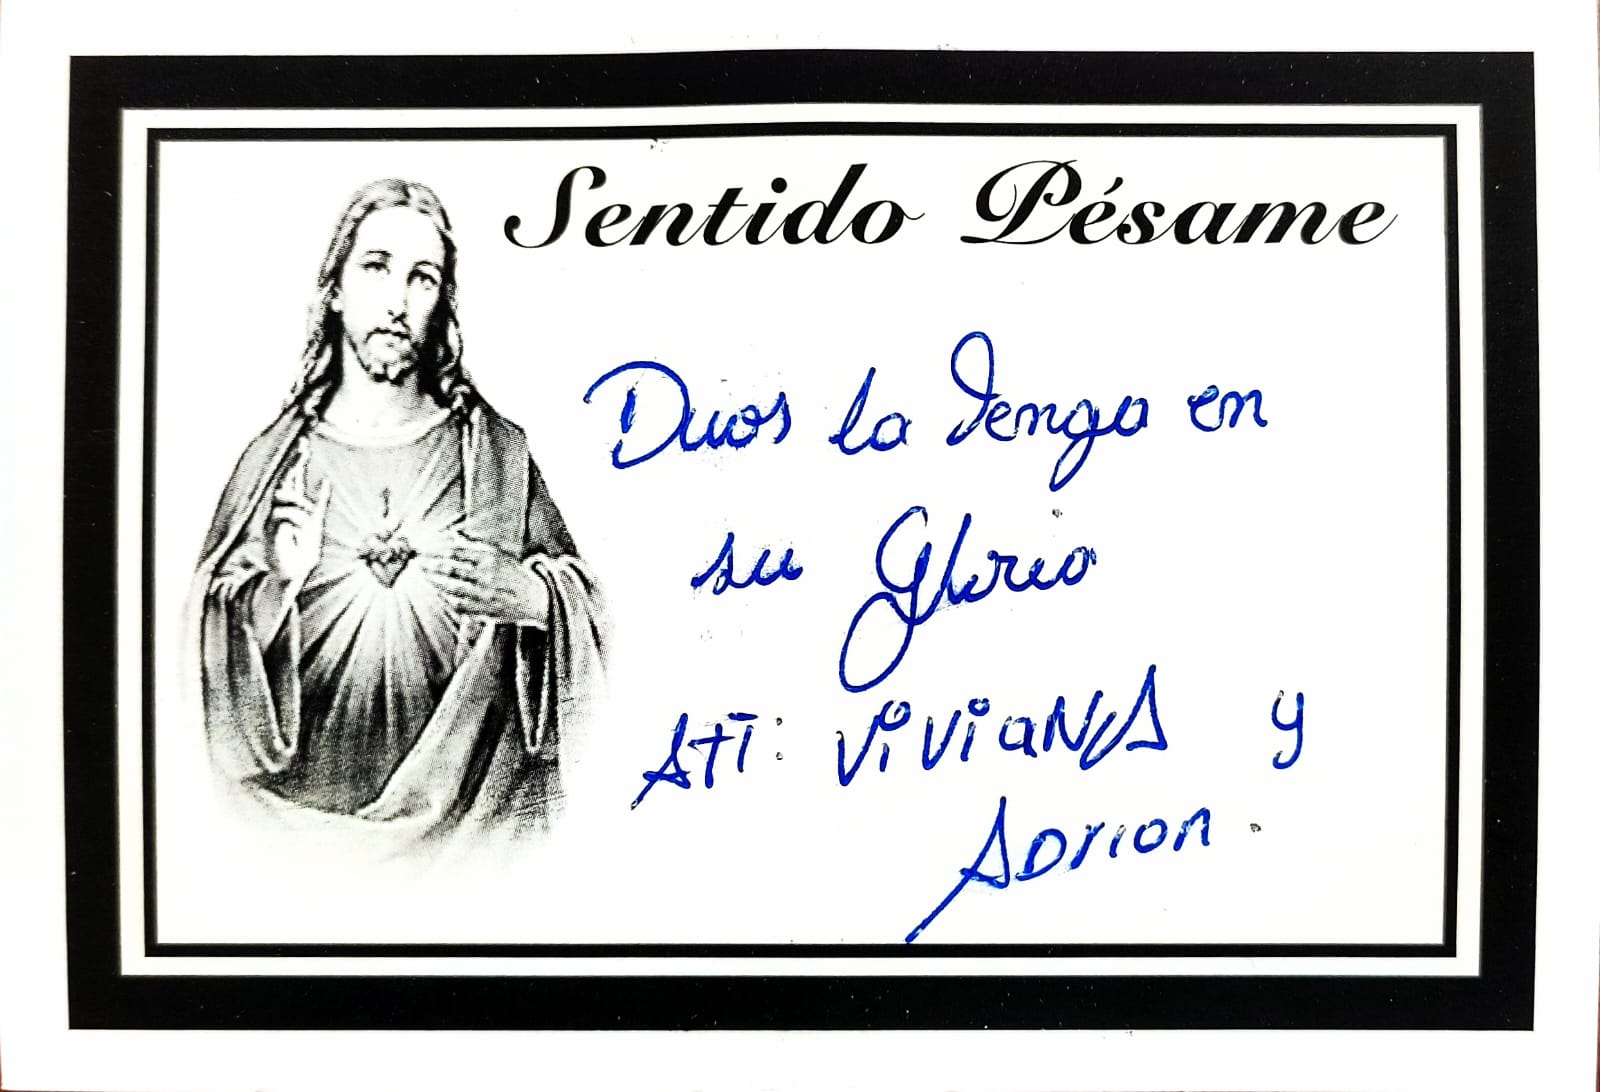 Sentido Pésame
Dios la tenga en
su Gloria
ATT: ViViaNA y
ADrian.